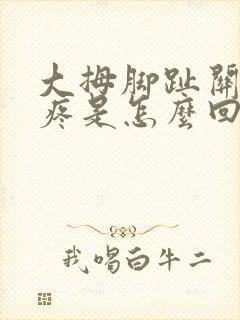 大拇脚趾關
疼是怎麼回
我喝白牛二